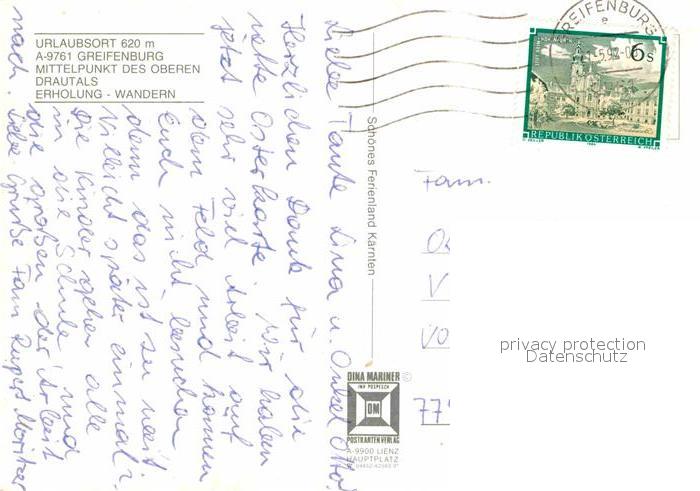 URLAUBSORT 620 m
A-9761 GREIFENBURG
MITTELPUNKT DES OBEREN
DRAUTALS
ERHOLUNG - WANDERN
Liebe Tante Lina u. Onkel Otto!
Herzlichen Dank für die
nette Osterkarte. Wir haben
jetzt sehr viel Arbeit auf
dem Feld und können
Euch nicht besuchen
denn das ist zu weit.
Vielleicht später einmal?
Die Kinder gehen alle
in die Schule und
die großen der Arbeit
nach. Liebe Grüße Fam Rupert Moritzer
Schönes Ferienland Kärnten
DINA MARINER ©
INH POSPESCH
DM
POSTKARTENVERLAG
A-9900 LIENZ
HAUPTPLATZ
GREIFENBURG
6s
REPUBLIK ÖSTERREICH
Fam.
77
privacy protection
Datenschutz